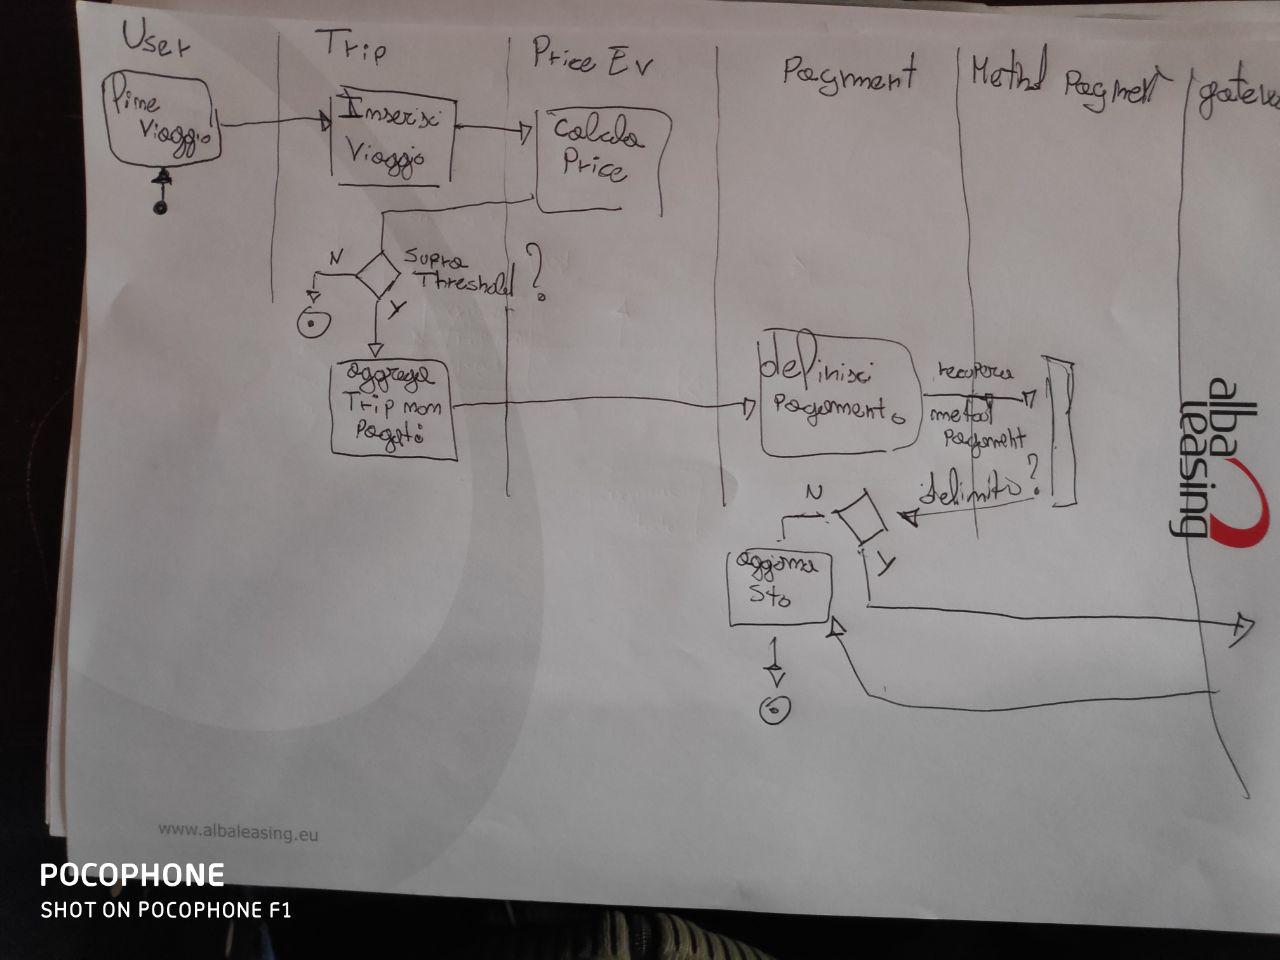 User
Trip
Price Ev
Pagment
Method Pagment
gatew
Fine
Viaggio
Inserisci
Viaggio
Calcola
Price
N
Supra
Threshold ?
Y
aggrega
Trip non
Pagati
definisci
Pagamento
recupera
metod
Pagament
definito?
N
Y
aggiorna
Sto
alba
leasing
www.albaleasing.eu
POCOPHONE
SHOT ON POCOPHONE F1